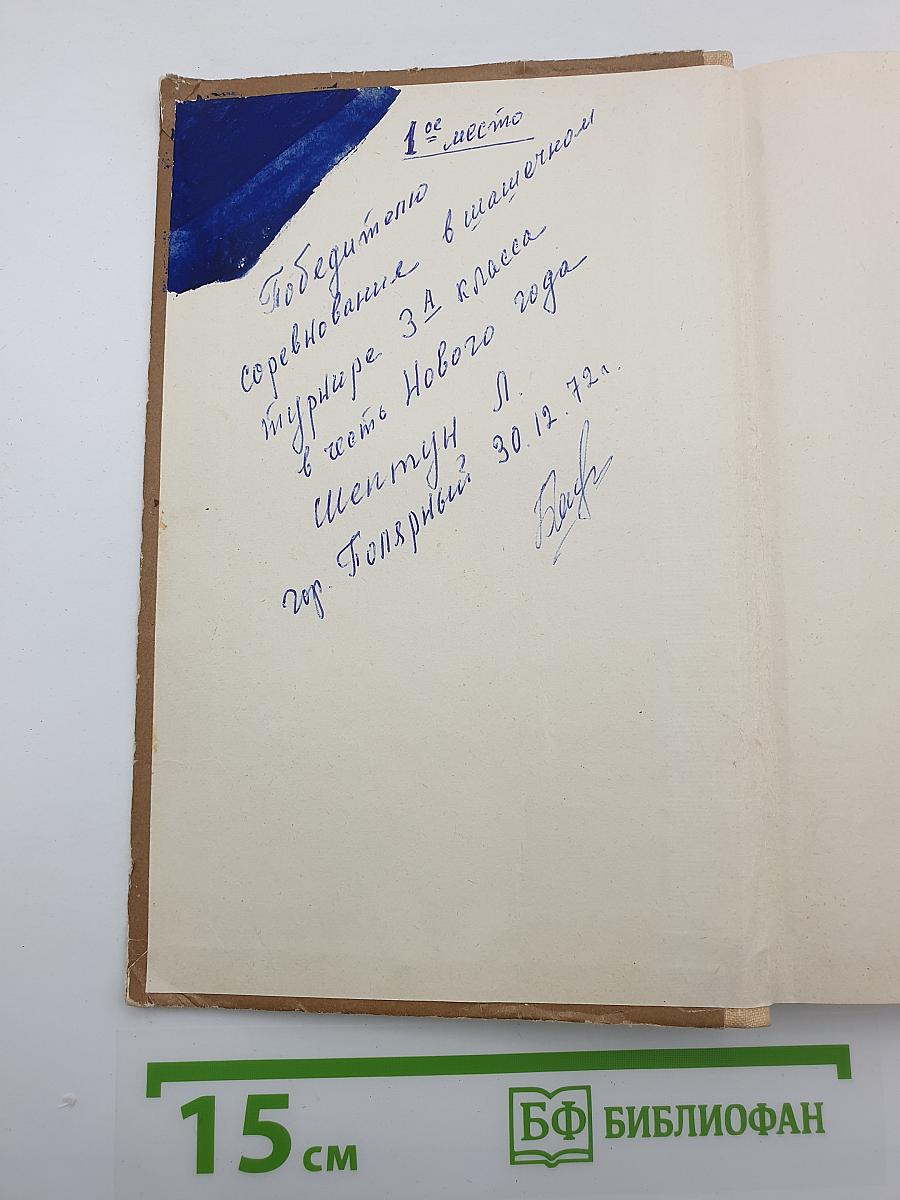 1ое место
Победителю
соревнования в шашечном
турнире 3А класса
в честь Нового года
Шептун Л.
гор. Полярный 30.12.72г.
15 см
БФ БИБЛИОФАН